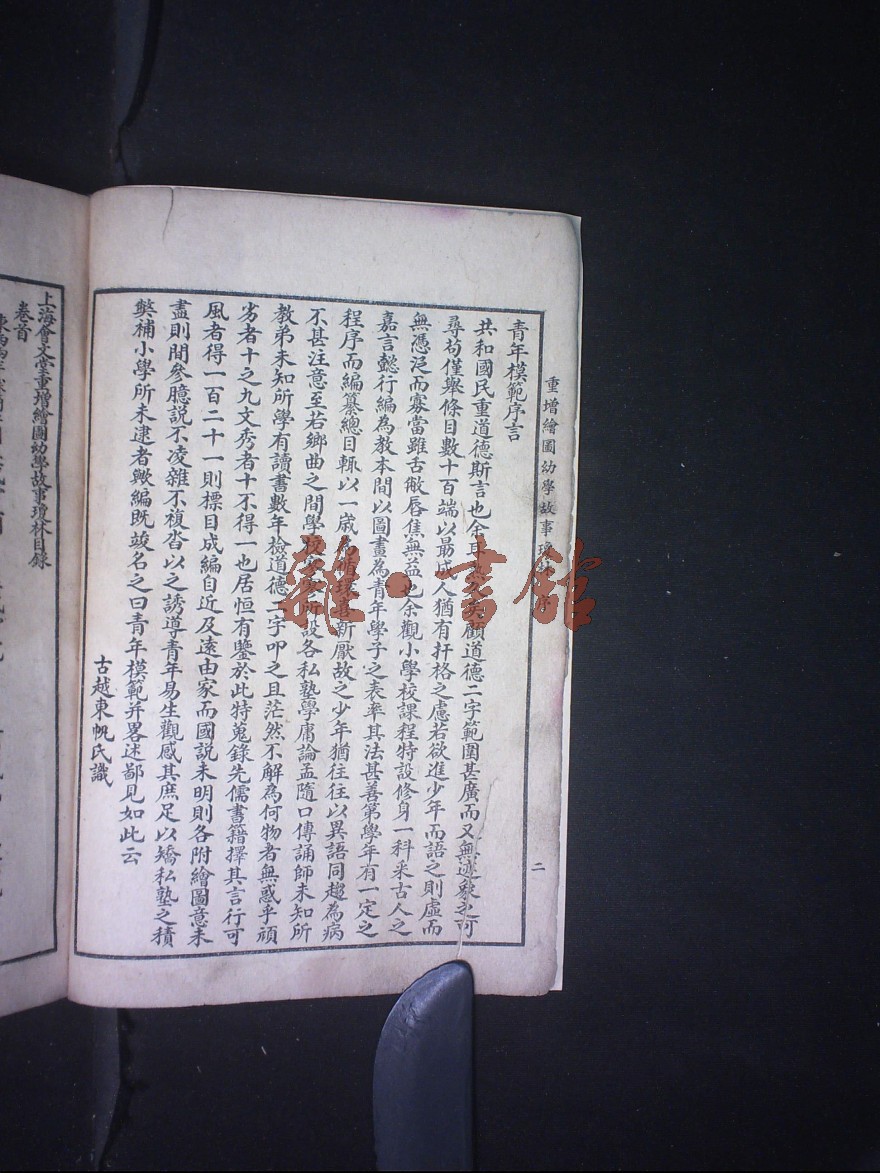 重增繪圖幼學故事瓊
二
青年模範序言
共和國民重道德斯言也余耳顧道德二字範圍甚廣而又無迹象之可
尋苟僅舉條目數十百端以最成人猶有扞格之慮若欲進少年而語之則虛而
無憑泛而寡當雖舌敝唇焦無益也余觀小學校課程特設修身一科采古人之
嘉言懿行編為教本間以圖畫為青年學子之表率其法甚善第學年有一定之
程序而編纂總目輒以一歲為循環喜新厭故之少年猶往往以異語同趨為病
不甚注意至若鄉曲之間學所設各私塾學庸論孟隨口傳誦師未知所
教弟未知所學有讀書數年檢道德二字叩之且茫然不解為何物者無惑乎頑
劣者十之九文秀者十不得一也居恒有鑒於此特蒐錄先儒書籍擇其言行可
風者得一百二十一則標目成編自近及遠由家而國說未明則各附繪圖意未
盡則間參臆說不凌雜不複沓以之誘導青年易生觀感其庶足以矯私塾之積
弊補小學所未逮者歟編既竣名之曰青年模範并畧述鄙見如此云
古越東帆氏識
上海會文堂重增繪圖幼學故事瓊林目錄
卷首
雜·書館